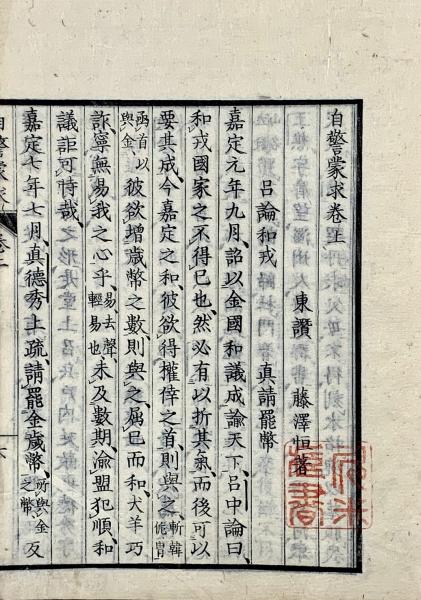 自警蒙求卷上
東讚 藤澤恒著
呂論和戎 真請罷幣
嘉定元年九月、詔以金國和議成諭天下、呂中論曰、
和戎國家之不得已也、然必有以折其氣、而後可以
要其成、今嘉定之和、彼欲得權倖之首、則與之、斬韓侂冑
函首以與金彼欲增歲幣之數、則與之、屈已而和、犬羊巧
詐、寧無易我之心乎、易去聲輕易也未及數期、渝盟犯順、和
議詎可恃哉
嘉定七年七月、真德秀上疏、請罷金歲幣、所與金之幣及
自警蒙求卷上